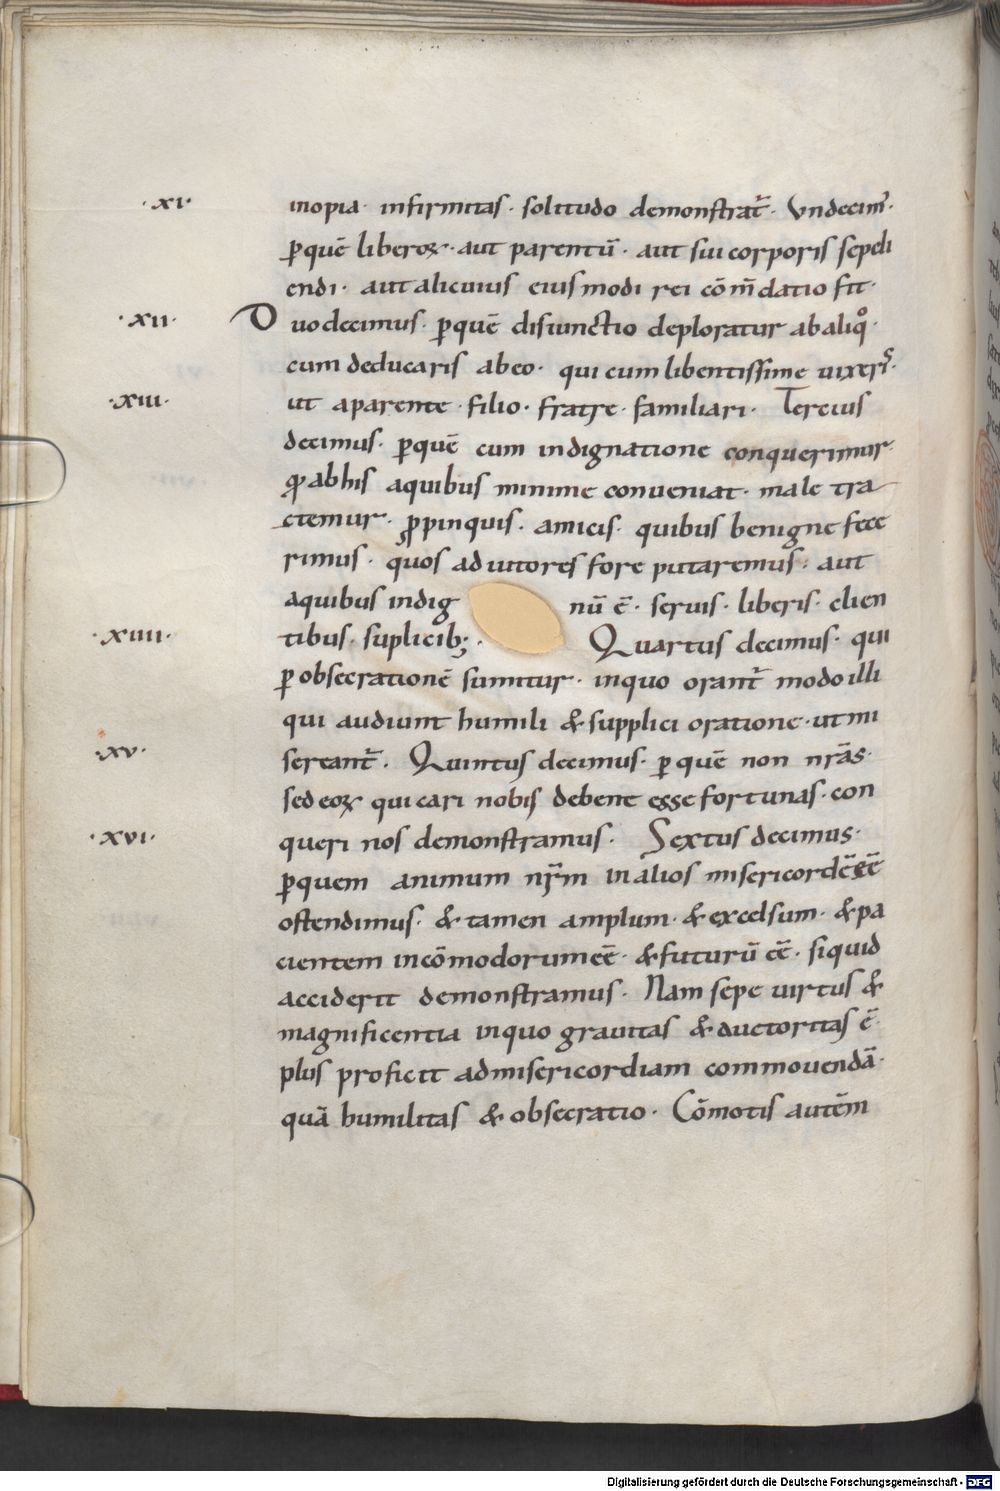 ·xı·
inopia· infirmitas· solitudo demonstrat᷑· Vndecim᷑·
ꝑquē liberoꝝ· aut parentū· aut sui corporis sepeli
endi· aut alicuius eiusmodi rei cōm̄datio fit·
·xıı·
Duodecimus· ꝑquē disiunctio deploratur abaliqͦ·
cum deducaris abeo· qui cum libentissime uixeris·
·xııı·
ut aparente· filio· fratre· familiari· Tercius
decimus· ꝑquē cum indignatione conquerimur·
ꝙ abhis aquibus minime conueniat· male tra
ctemur· ꝓpinquis· amicis· quibus benigne fece
rimus· quos adiutores fore putaremus· aut
aquibus indig nū ē· seruis· liberis· clien
tibus· suplicib;·
·xıııı·
Quartus decimus· qui
ꝑ obsecrationē sumitur· inquo orant᷑ modo illi
qui audiunt humili & supplici oratione· ut mi
·xv·
sereant᷑· Quintus decimus· ꝑ quē non nr̄as·
sed eoꝝ qui cari nobis debent esse fortunas· con
·xvı·
queri nos demonstramus· Sextus decimus·
ꝑquem animum nr̄m inalios misericordē eē
ostendimus· & tamen amplum· & excelsum· & pa
cientem incōmodorum eē· & futurū eē· siquid
acciderit demonstramus· Nam sepe uirtus &
magnificentia inquo grauitas & auctoritas ē·
plus proficit admisericordiam commouendā·
quā humilitas & obsecratio· Cōmotis autēm
Digitalisierung gefördert durch die Deutsche Forschungsgemeinschaft - DFG